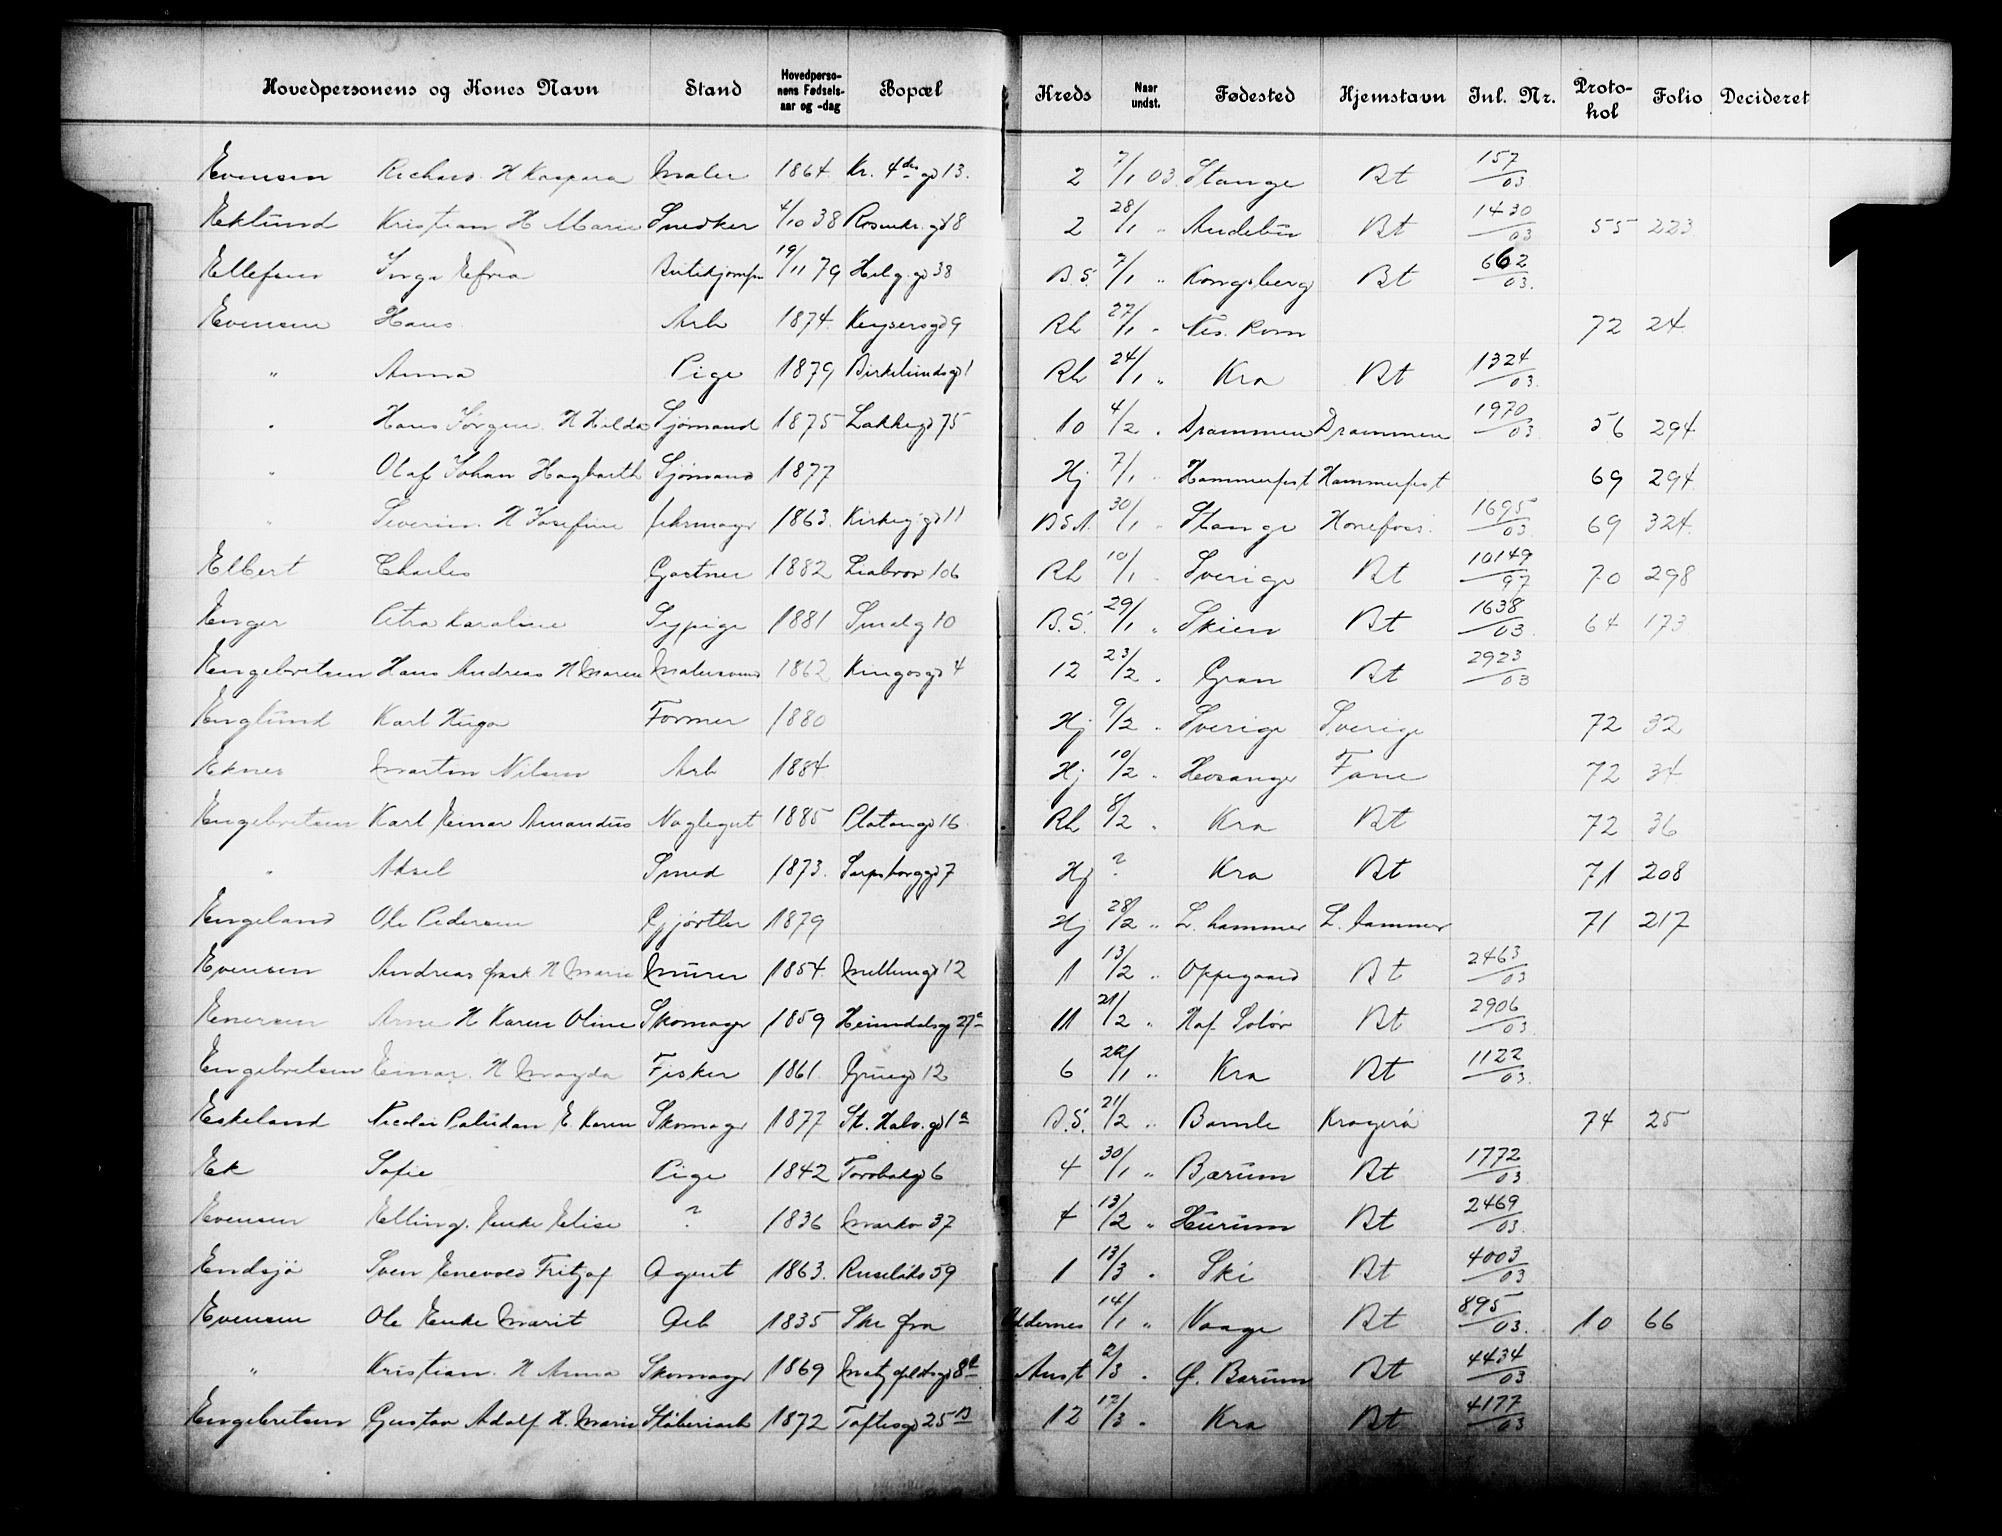 Hovedpersonens og Kones Navn Stand Hovedpersonens Fødselsaar og -dag Bopæl Kreds Naar undst. Fødested Hjemstavn Inl. Nr. Protokol Folio Decideret
Evensen Richard H Kaspara Maler 1864 Kr. 4des gd 13. 2 7/1 03 Stange Bt 157/03
Eklund Kristian H Marie Snedker 4/10 38 Rosenkr. gd 8 2 28/1 " Andebu Bt 1430/03 55 223
Ellefsen Inga Efria Butikjomfr 19/11 79 Helg. gd 38 B.S. 7/1 " Kongsberg Bt 662/03
Evensen Hans Arb 1874 Keysersgd 9 Rh 27/1 " Nes. Rom 72 24
" Anna Pige 1879 Birkelundsgd 1 Rh 24/1 " Kra Bt 1324/03
" Hans Jørgen H Hilda Sjømand 1875 Lakkegd 75 10 4/2 " Drammen Drammen 1970/03 56 294
" Olaf Johan Hagbarth Sjømand 1877 Hj 7/1 " Hammerfest Hammerfest 69 294
" Severin. H Josefine 1863 Kirkeg. gd 11 B.S.A. 30/1 " Stange Hønefoss. 1695/03 69 324
Elbert Charles Gartner 1882 Liabrov 106 Rh 10/1 " Sverige Bt 10149/97 70 298
Enger Petra Karoline Sypige 1881 Smalg 10 B.S. 29/1 " Skien Bt 1638/03 64 173
Engebretsen Hans Andreas H Maren Malersvend 1862 Kingosgd 4 12 23/2 " Gran Bt 2923/03
Englund Karl Hugo Former 1880 Hj 9/2 " Sverige Sverige 72 32
Eknes Martin Nilsen Arb 1884 Hj 10/2 " Hosanger Fane 72 34
Engebretsen Karl Einar Amandus Naglegut 1885 Platougd 16 Rh 8/2 " Kra Bt 72 36
" Aksel Smed 1873. Sarpsborggd 7 Hj ? Kra Bt 71 208
Engeland Ole Pedersen Gjørtler 1879 Hj 28/2 " L. hammer L. hammer 71 217
Evensen Andreas H Marie Murer 1854 Mellumgd 12 1 13/2 " Oppegaard Bt 2463/03
Enersen Arne H Karen Oline Skomagr 1859 Heimdalsg 27c 11 21/2 " Hof Solør Bt 2906/03
Engebretsen Einar. H Magda Fisker 1861 Gruegd 12 6 22/1 " Kra Bt 1122/03
Eskeland Nicolai Paludan E. Karen Skomagr 1877 St. Halv. gd 1a B.S. 21/2 " Bamle Kragerø 74 25
Ek Sofie Pige 1842 Torvbakgd 6 4 30/1 " Bærum Bt 1772/03
Evensen Elling. Enke Elise ? 1836 Markv 37 4 13/2 " Hurum Bt 2469/03
Endsjø Sven Enevold Fritjof Agent 1863. Ruseløkv 59 1 13/3 " Ski Bt 4003/03
Evensen Ole Enke Marit Arb 1835 Ske fra Oddernes 14/1 " Vaage Bt 895/03 10 66
" Kristian. H Anna Skomagr 1869 8b Anst 2/3 " Ø. Bærum Bt 4434/03
Engebretsen Gustav Adolf H. Marie Støberiarb 1872 Toftesgd 25B 12 17/3 " Kra Bt 4177/03